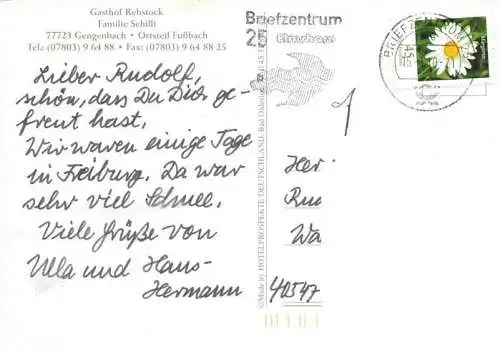 Gasthof Rebstock
Familie Schilli
77723 Gengenbach • Ortsteil Fußbach
Tel.: (07803) 9 64 88 • Fax: (07803) 9 64 88 25
Lieber Rudolf,
schön, dass Du Dich ge-
freut hast.
Wir waren einige Tage
in Freiburg. Da war
sehr viel Schnee.
Viele Grüße von
Ulla und Hans-
Hermann
Briefzentrum
25
Elmshorn
BRIEFZENTRUM
©Made by HOTELPROSPEKTE-DEUTSCHLAND
Her
Rud
Wa
40547